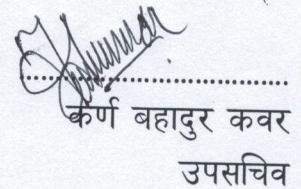 कर्ण बहादुर कवर
उपसचिव